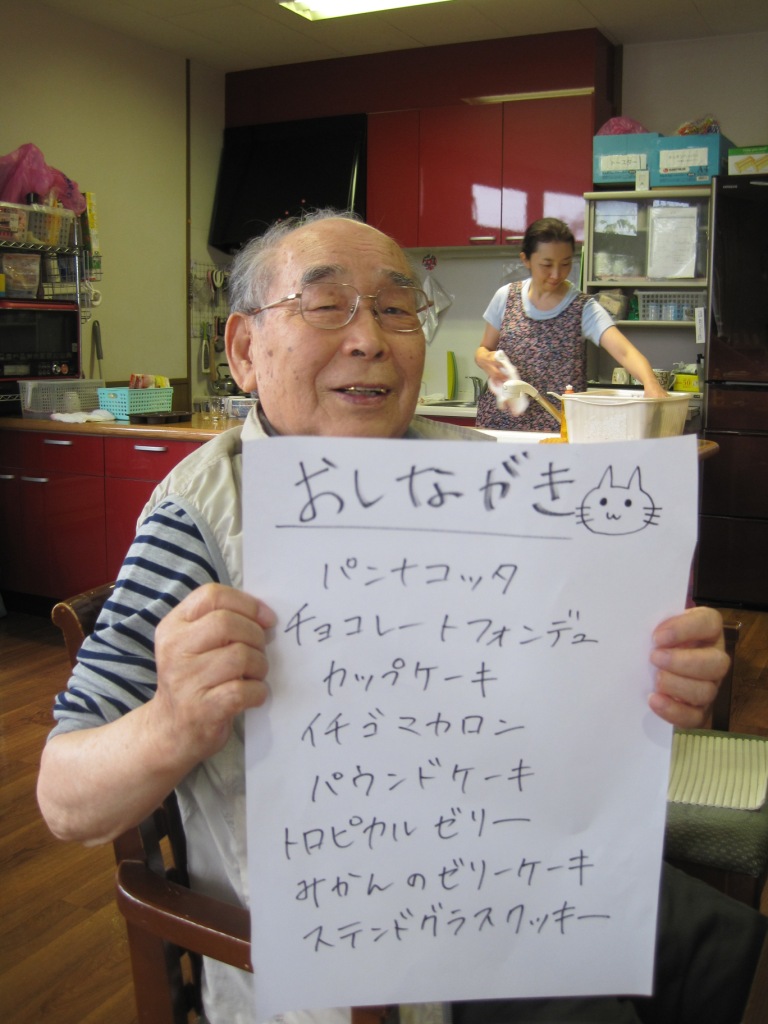 おしながき
パンナコッタ
チョコレートフォンデュ
カップケーキ
イチゴマカロン
パウンドケーキ
トロピカルゼリー
みかんのゼリーケーキ
ステンドグラスクッキー